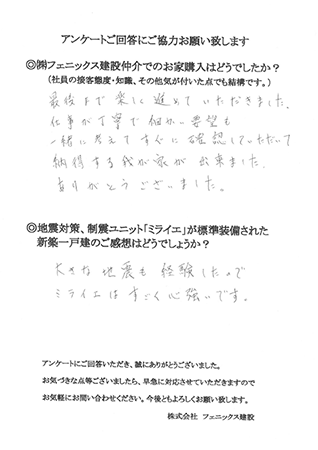 アンケートご回答にご協力お願い致します
◎㈱フェニックス建設仲介でのお家購入はどうでしたか？
（社員の接客態度・知識、その他気が付いた点でも結構です。）
最後まで楽しく進めていただきました。
仕事が丁寧で細かい要望も
一緒に考えてすぐに確認していただいて
納得する我が家が出来ました。
ありがとうございました。
◎地震対策、制震ユニット「ミライエ」が標準装備された
新築一戸建のご感想はどうでしょうか？
大きな地震も経験したので
ミライエはすごく心強いです。
アンケートにご回答いただき、誠にありがとうございました。
お気づきな点等ございましたら、早急に対応させていただきますので
お気軽にお問い合わせください。今後ともよろしくお願い致します。
株式会社 フェニックス建設